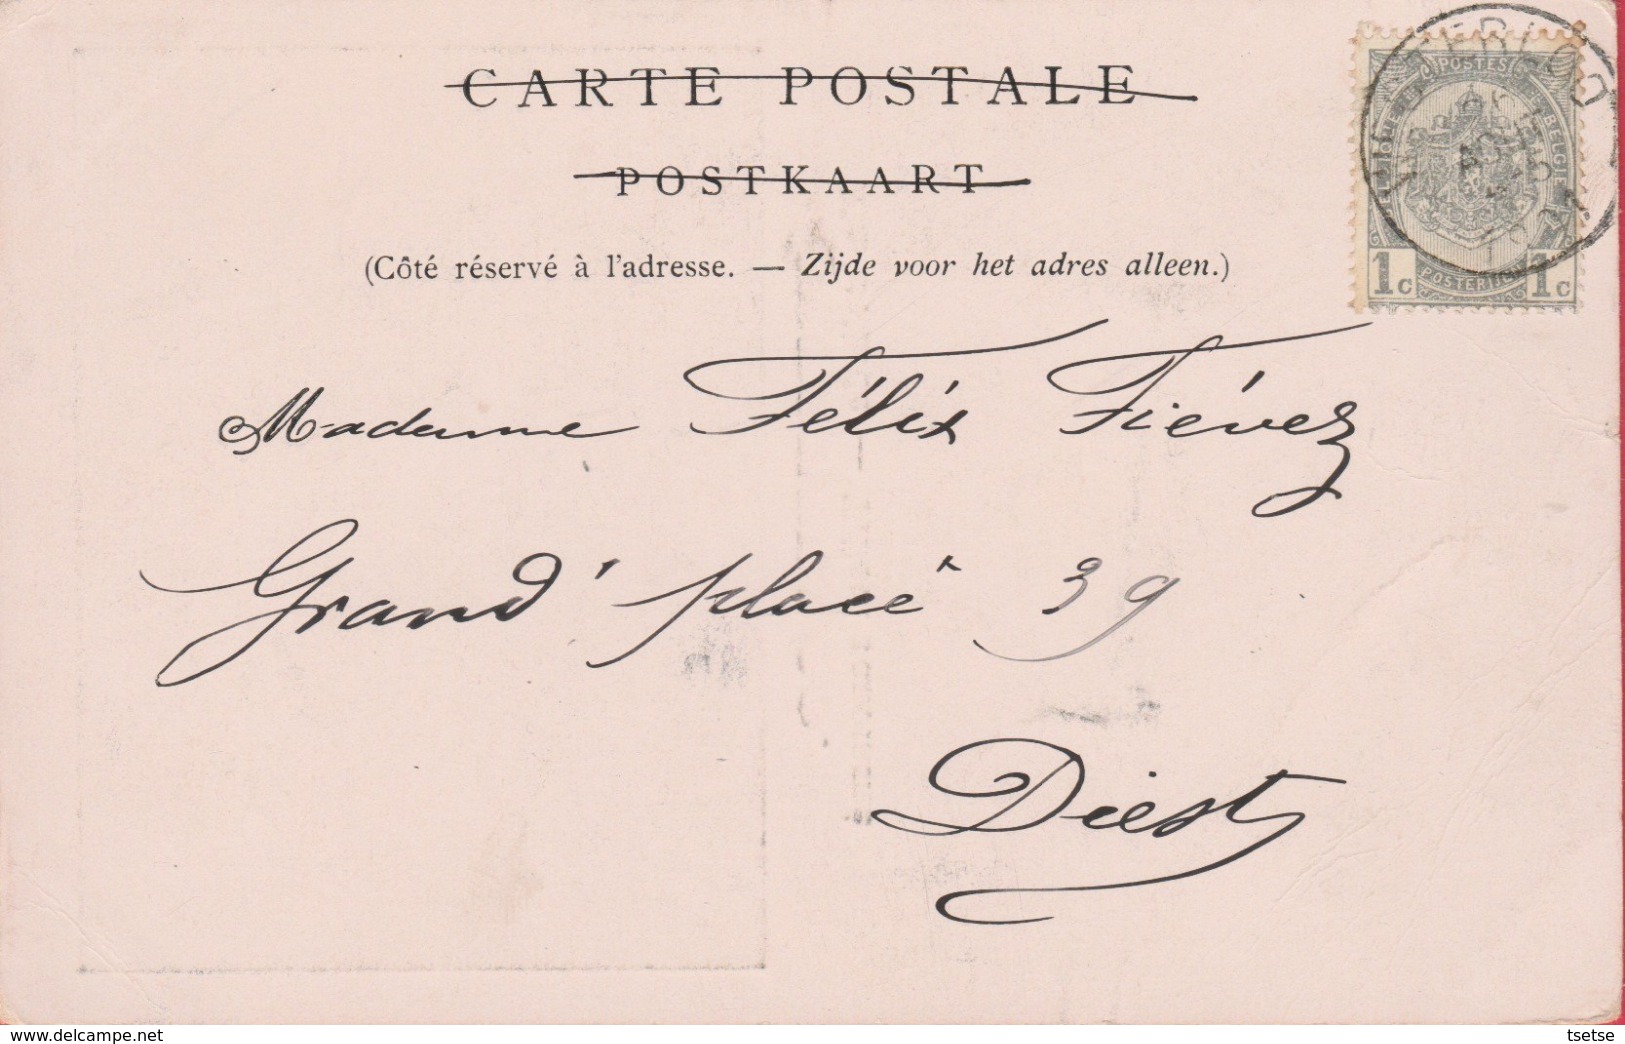 CARTE POSTALE
POSTKAART
(Côté réservé à l'adresse. — Zijde voor het adres alleen.)
POSTES
BELGIQUE
BELGIË
1c POSTERIJEN 1c
WESTERLOO
Madame Félix Fiévez
Grand' place 39
Diest
www.delcampe.net
tsetse